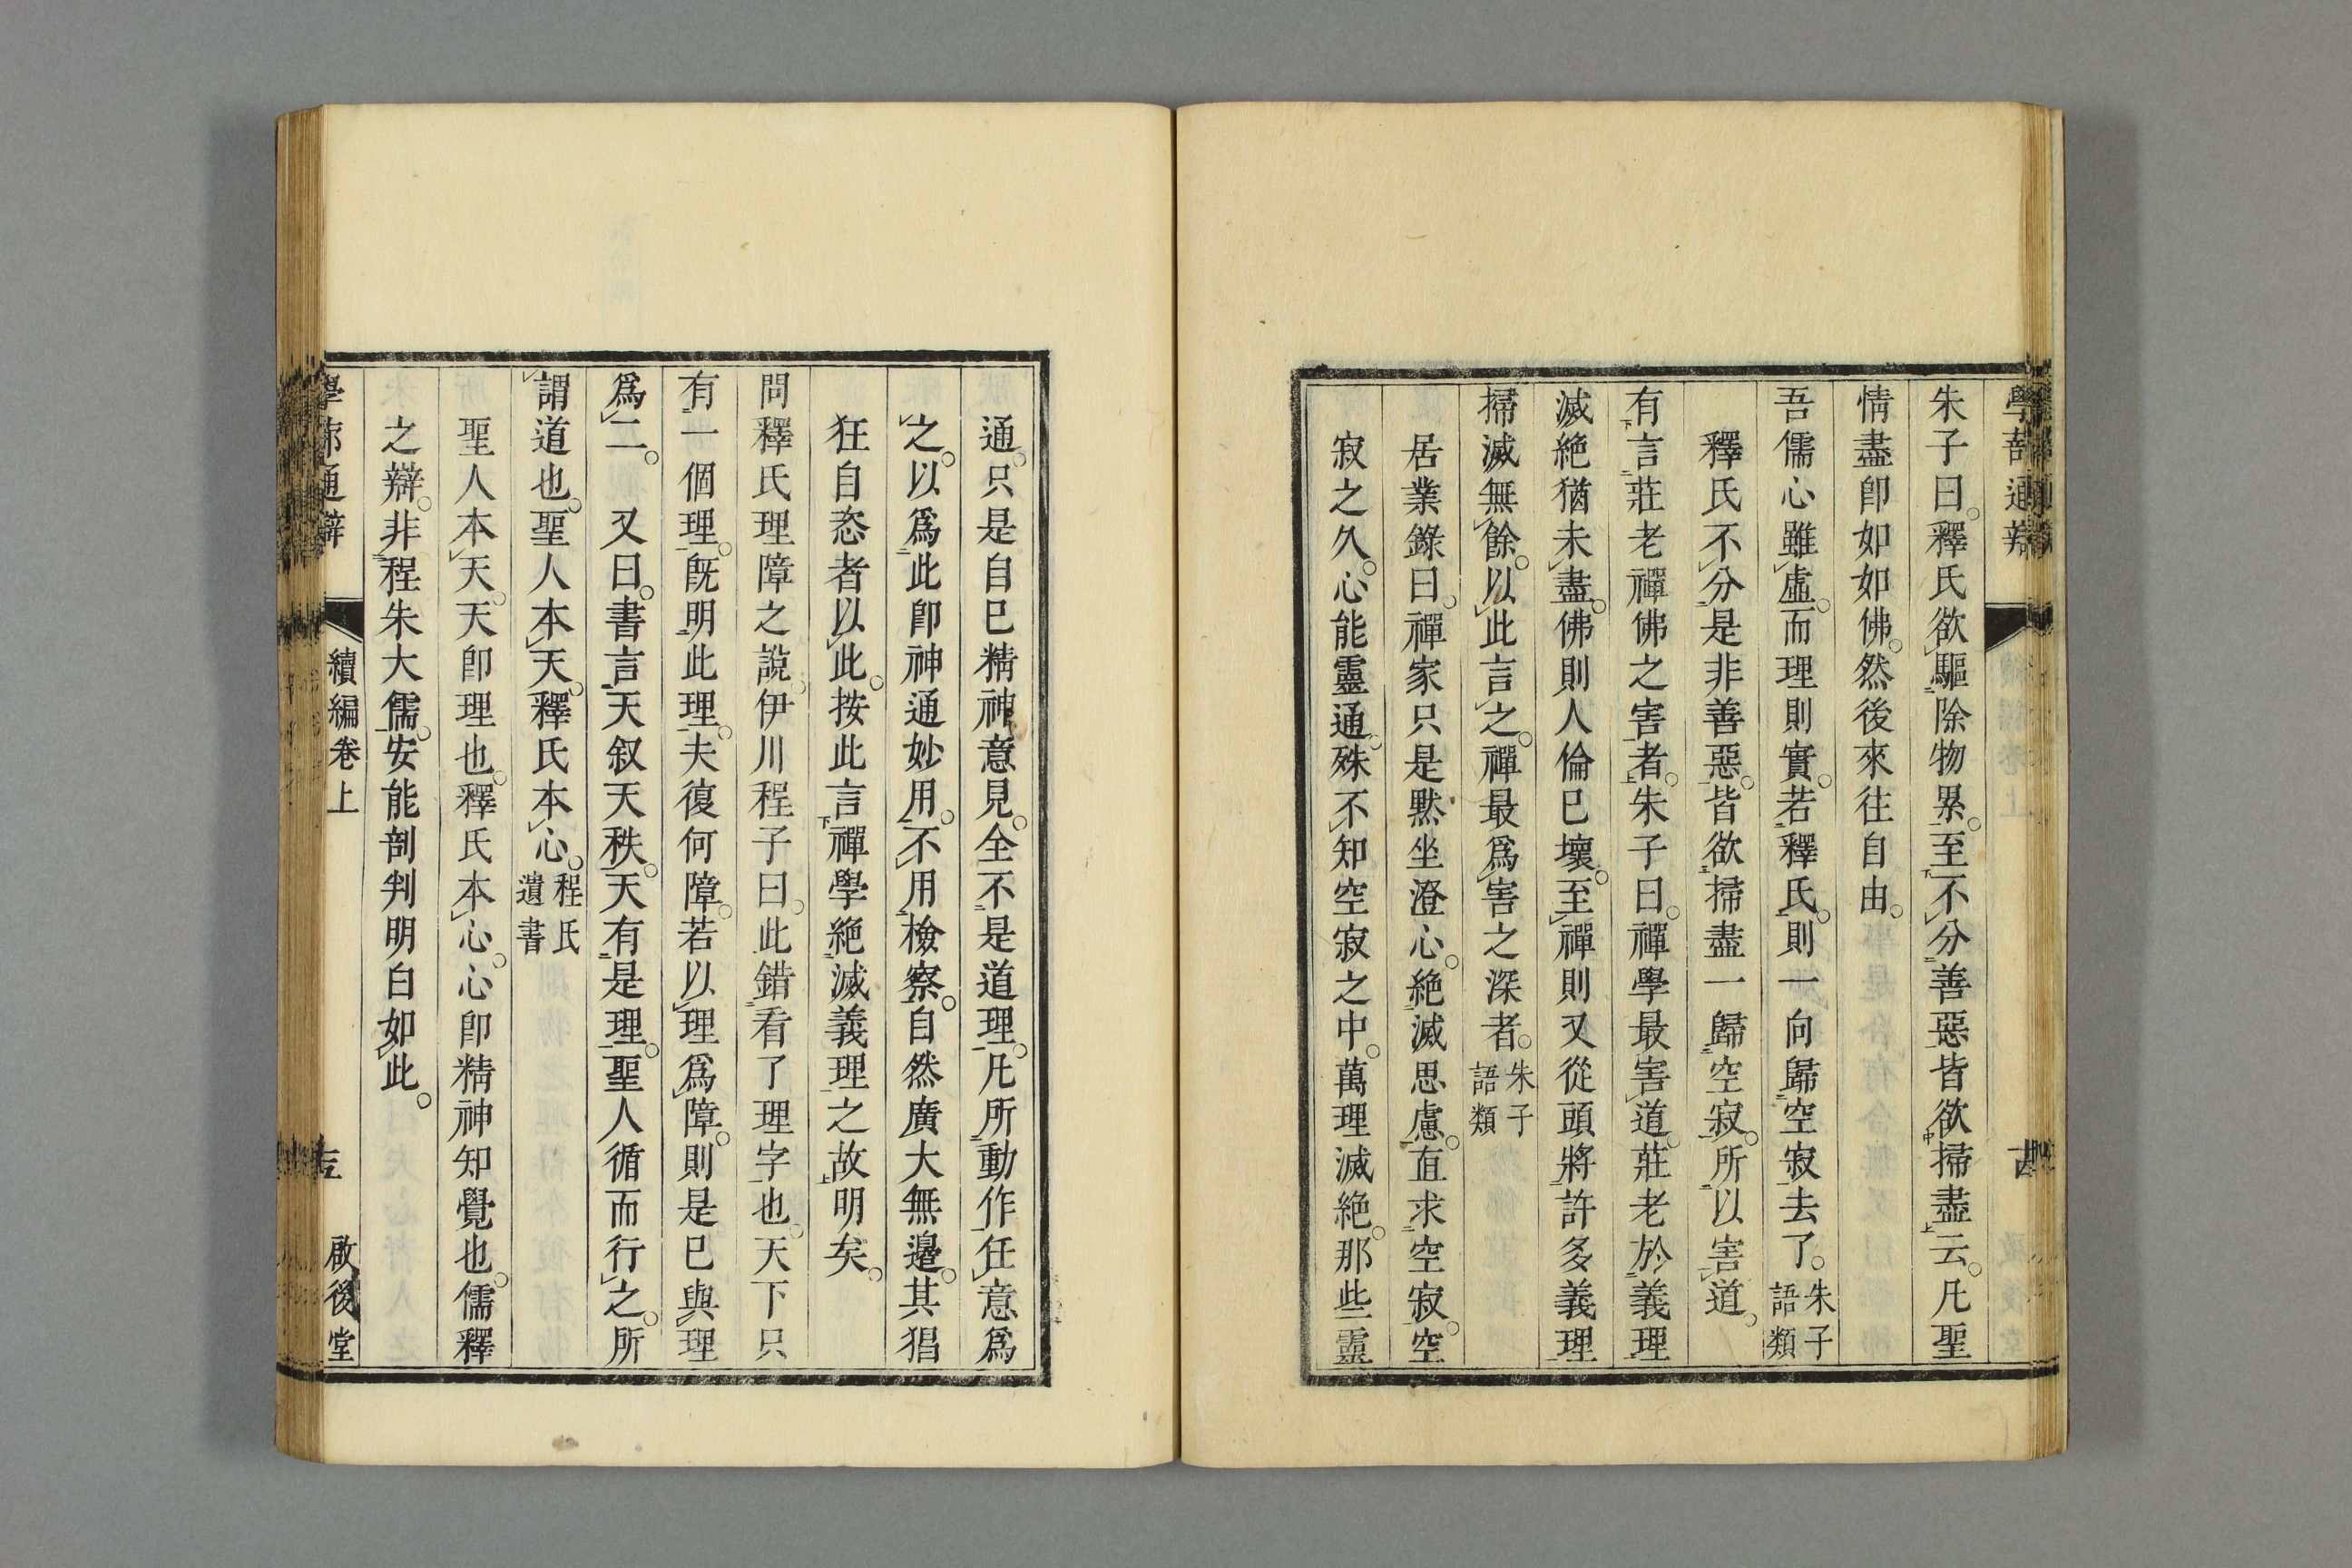 學蔀通辯
朱子曰。釋氏欲驅除物累。至不分善惡皆欲掃盡云。凡聖
情盡卽如如佛。然後來往自由。
吾儒心雖虛。而理則實。若釋氏。則一向歸空寂去了。朱子語類
釋氏不分是非善惡。皆欲掃盡一歸空寂。所以害道。
有言莊老禪佛之害者。朱子曰。禪學最害道。莊老於義理
滅絶猶未盡。佛則人倫已壞。至禪則又從頭將許多義理
掃滅無餘。以此言之。禪最爲害之深者。朱子語類
居業錄曰。禪家只是默坐澄心。絶滅思慮。直求空寂。空
寂之久。心能靈通。殊不知空寂之中。萬理滅絶。那些靈
通。只是自已精神意見。全不是道理。凡所動作任意爲
之。以爲此卽神通妙用。不用檢察。自然廣大無邊。其猖
狂自恣者以此。按此言禪學絶滅義理之故明矣。
問釋氏理障之說。伊川程子曰。此錯看了理字也。天下只
有一個理。旣明此理。夫復何障。若以理爲障。則是已與理
爲二。又曰。書言天叙天秩。天有是理。聖人循而行之。所
謂道也。聖人本天。釋氏本心。程氏遺書
聖人本天。天卽理也。釋氏本心。心卽精神知覺也。儒釋
之辯。非程朱大儒。安能剖判明白如此。
學蔀通辯 續編卷上 啟後堂